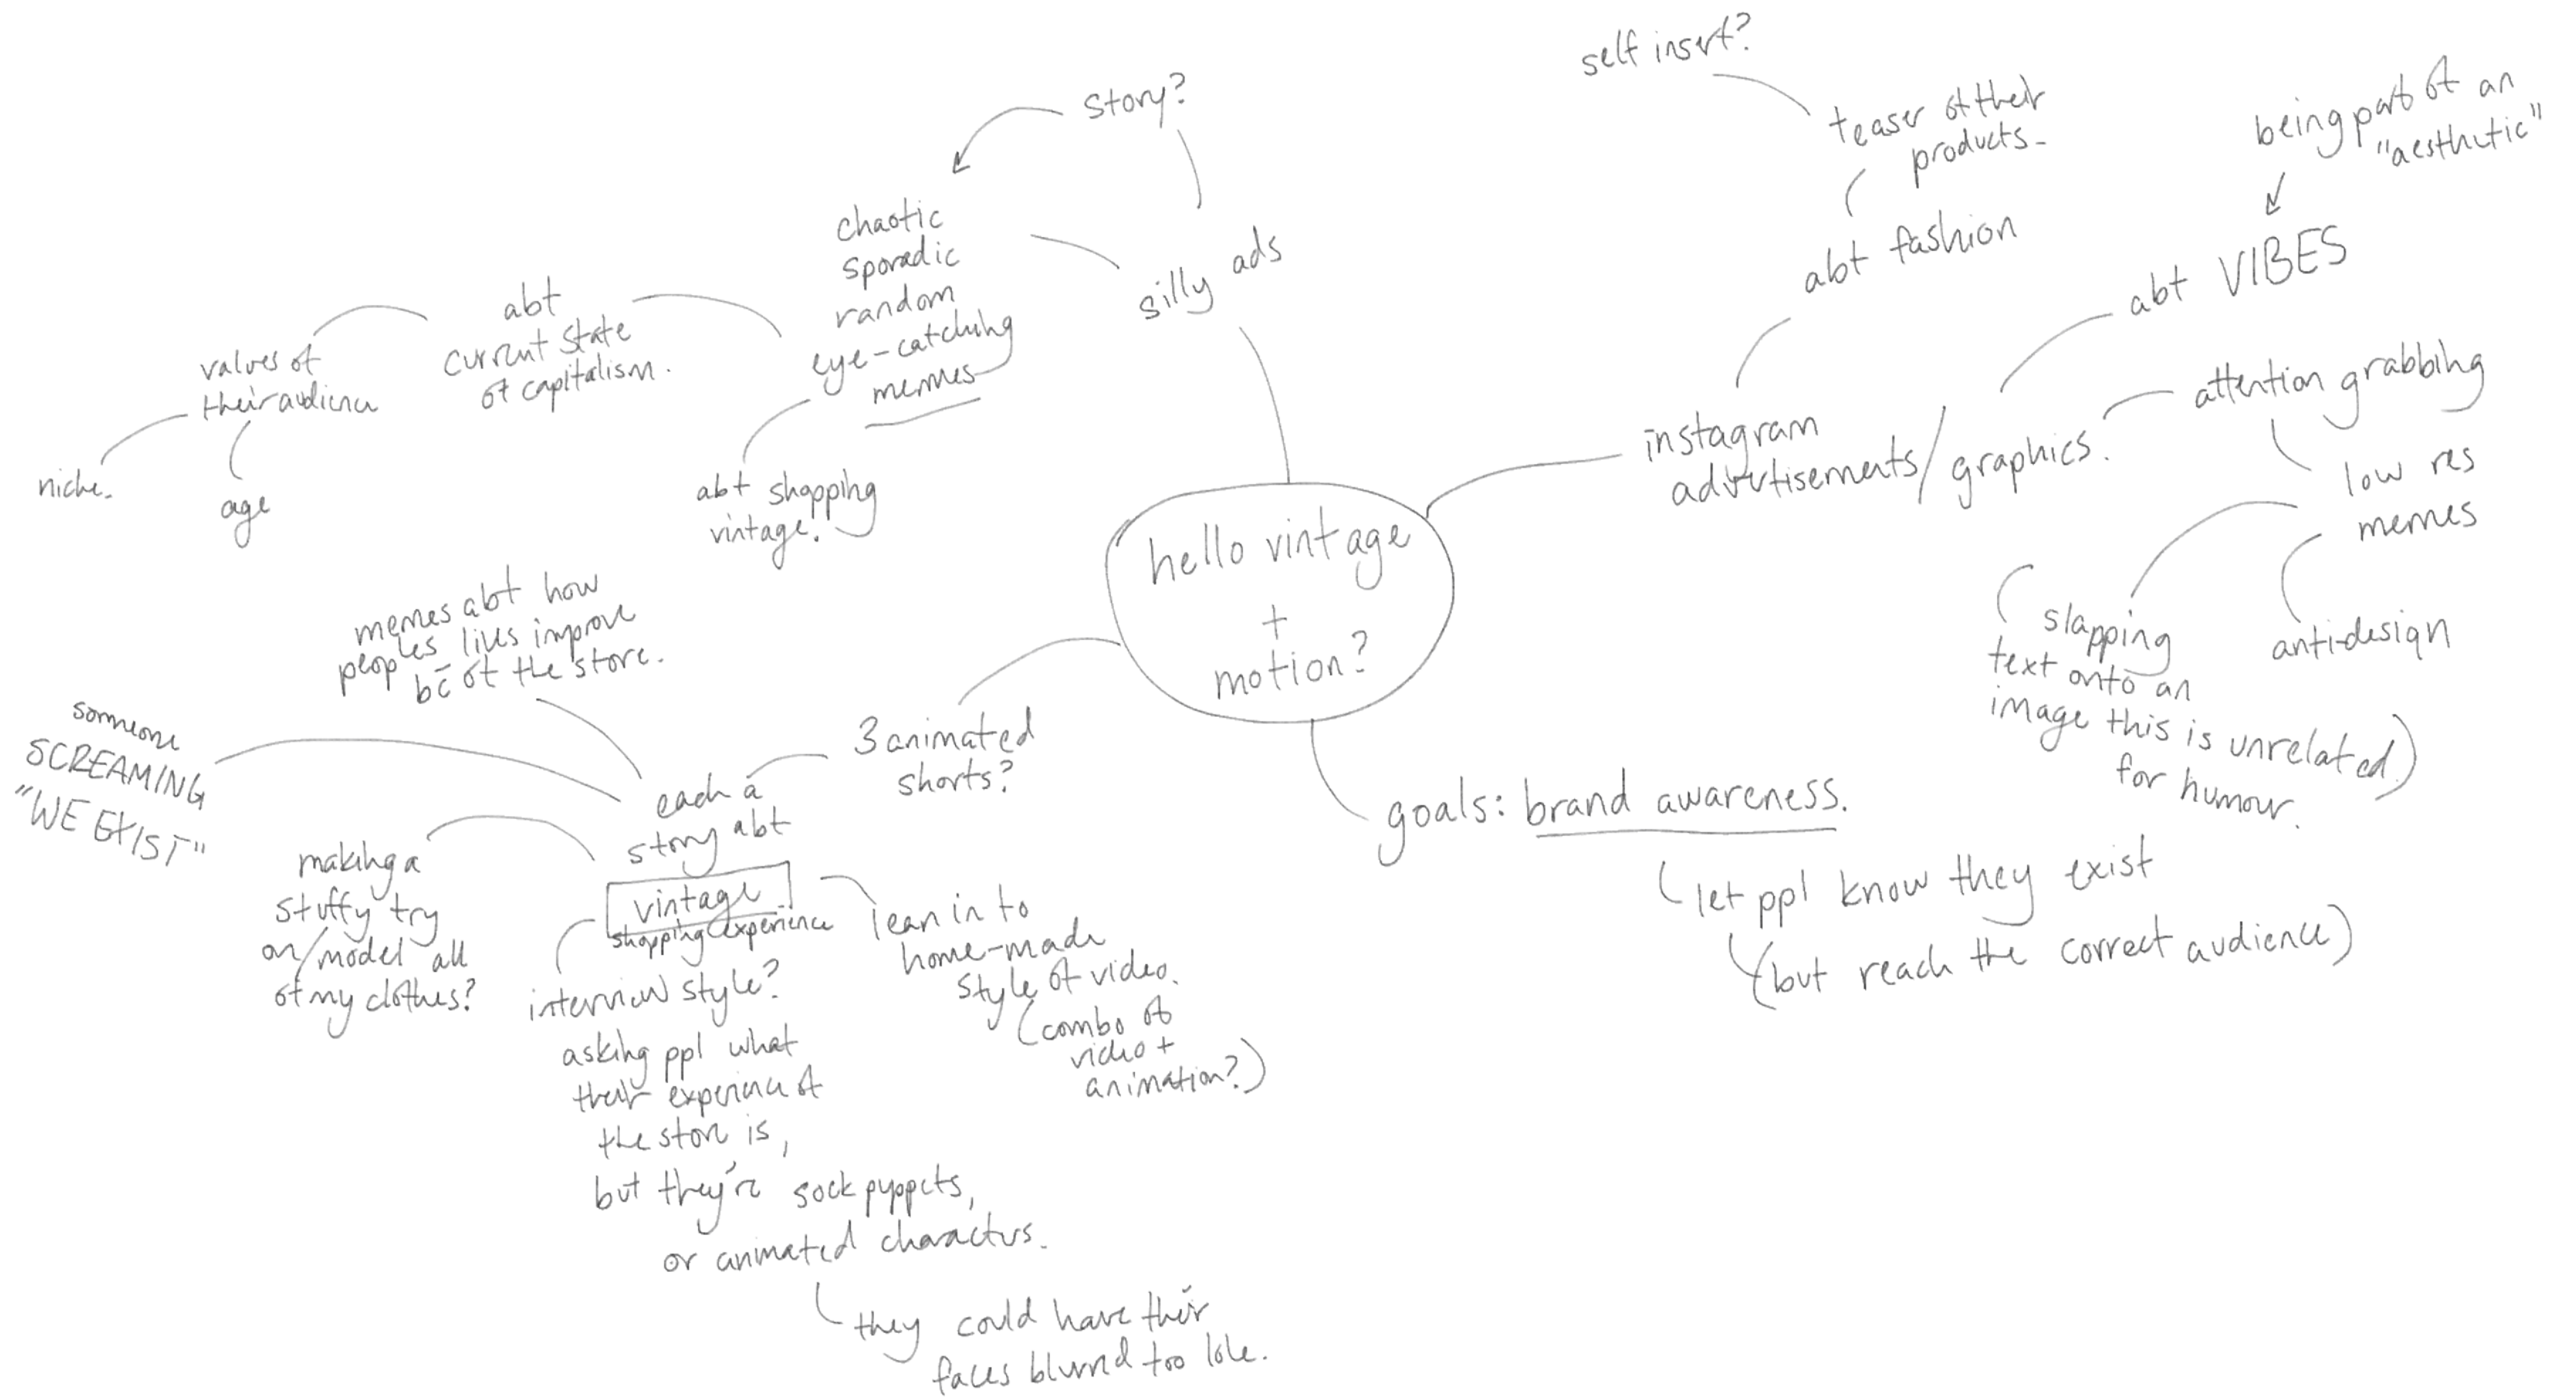 hello vintage
+
motion?
silly ads
story?
chaotic
sporadic
random
eye-catching
memes
abt shopping
vintage.
abt
current state
of capitalism.
values of
their audience
niche.
age
instagram
advertisements/graphics.
abt fashion
teaser of their
products.
self insert?
abt VIBES
being part of an
"aesthetic"
attention grabbing
low res
memes
anti-design
(slapping
text onto an
image this is unrelated)
for humour.
goals: brand awareness.
let ppl know they exist
(but reach the correct audience)
3 animated
shorts?
each a
story abt
vintage
shopping experience
memes abt how
peoples lives improve
bc of the store.
someone
SCREAMING
"WE EXIST"
making a
stuffy try
on/model all
of my clothes?
lean in to
home-made
style of video.
(combo of
video +
animation?)
interview style?
asking ppl what
their experience of
the store is,
but they're sock puppets,
or animated characters.
they could have their
faces blurred too lole.